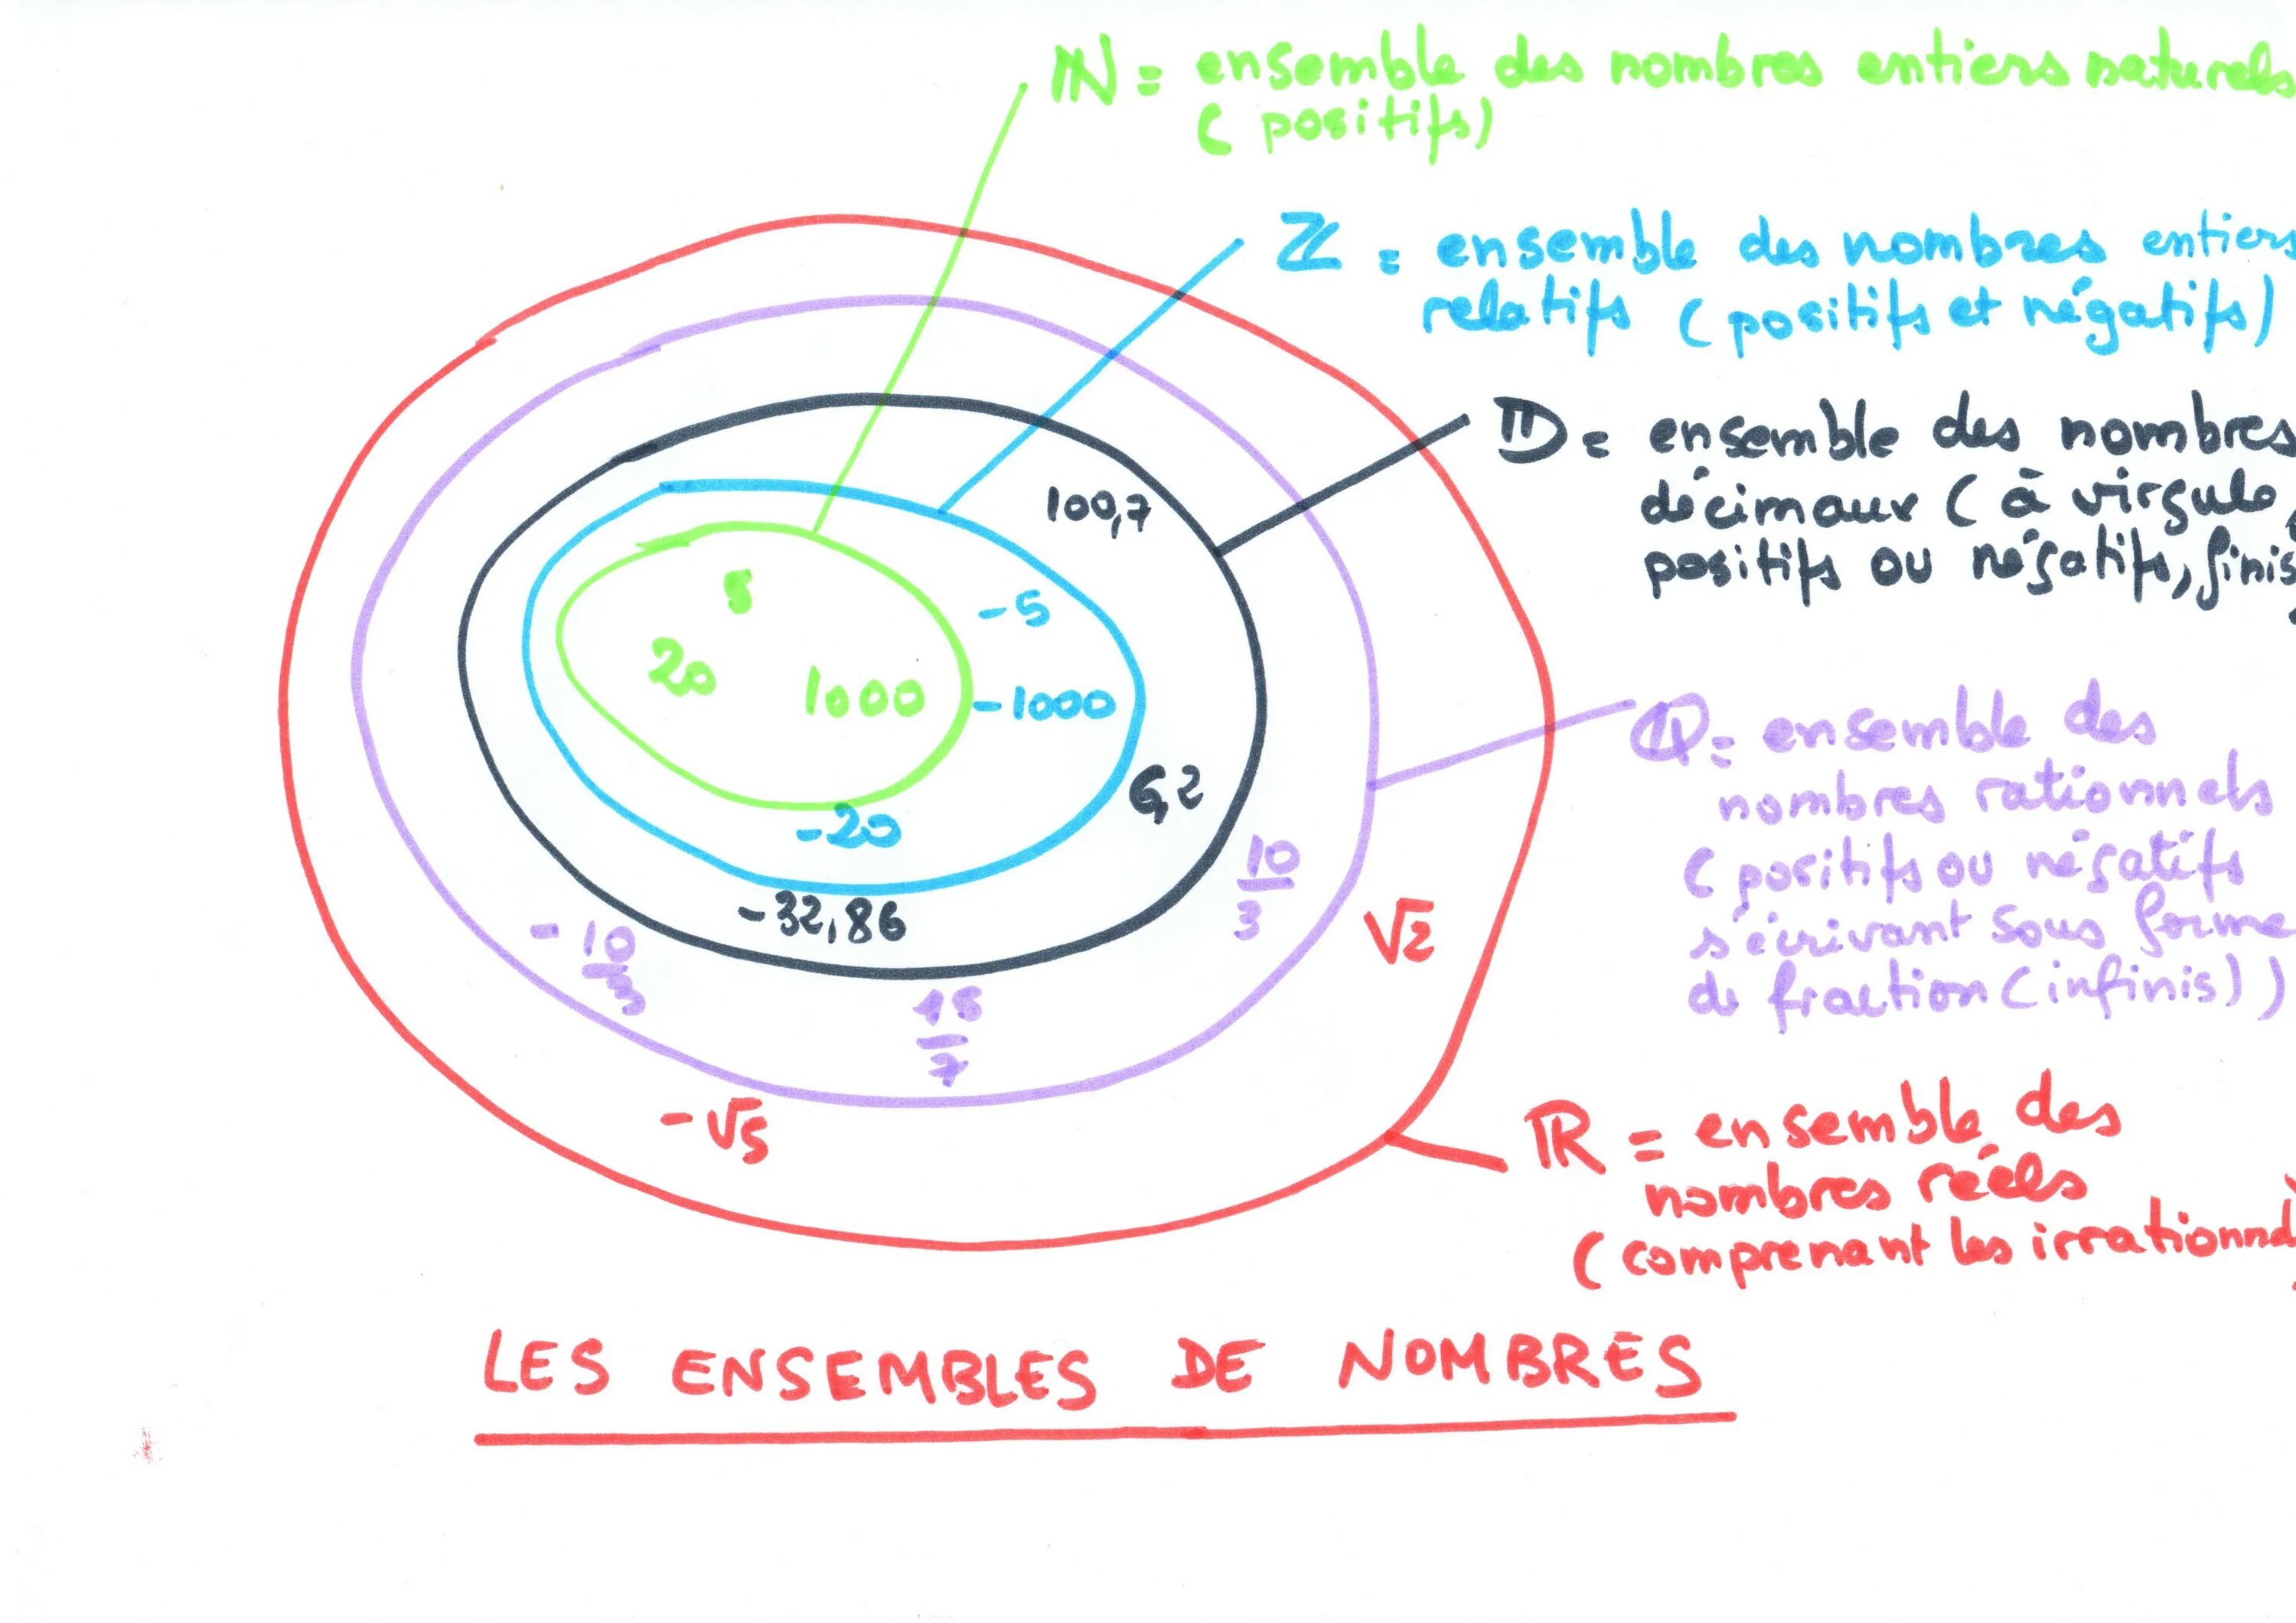 ℕ = ensemble des nombres entiers naturels
( positifs)
ℤ = ensemble des nombres entiers
relatifs ( positifs et négatifs)
𝔻 = ensemble des nombres
décimaux ( à virgule,
positifs ou négatifs, finis
100,7
5
-5
20
1000
-1000
6,2
-20
-32,86
10
3
- 10
3
√2
15
7
-√5
ℚ = ensemble des
nombres rationnels
( positifs ou négatifs
s'écrivant sous forme
de fraction (infinis) )
ℝ = ensemble des
nombres réels
( comprenant les irrationnel
LES ENSEMBLES DE NOMBRES